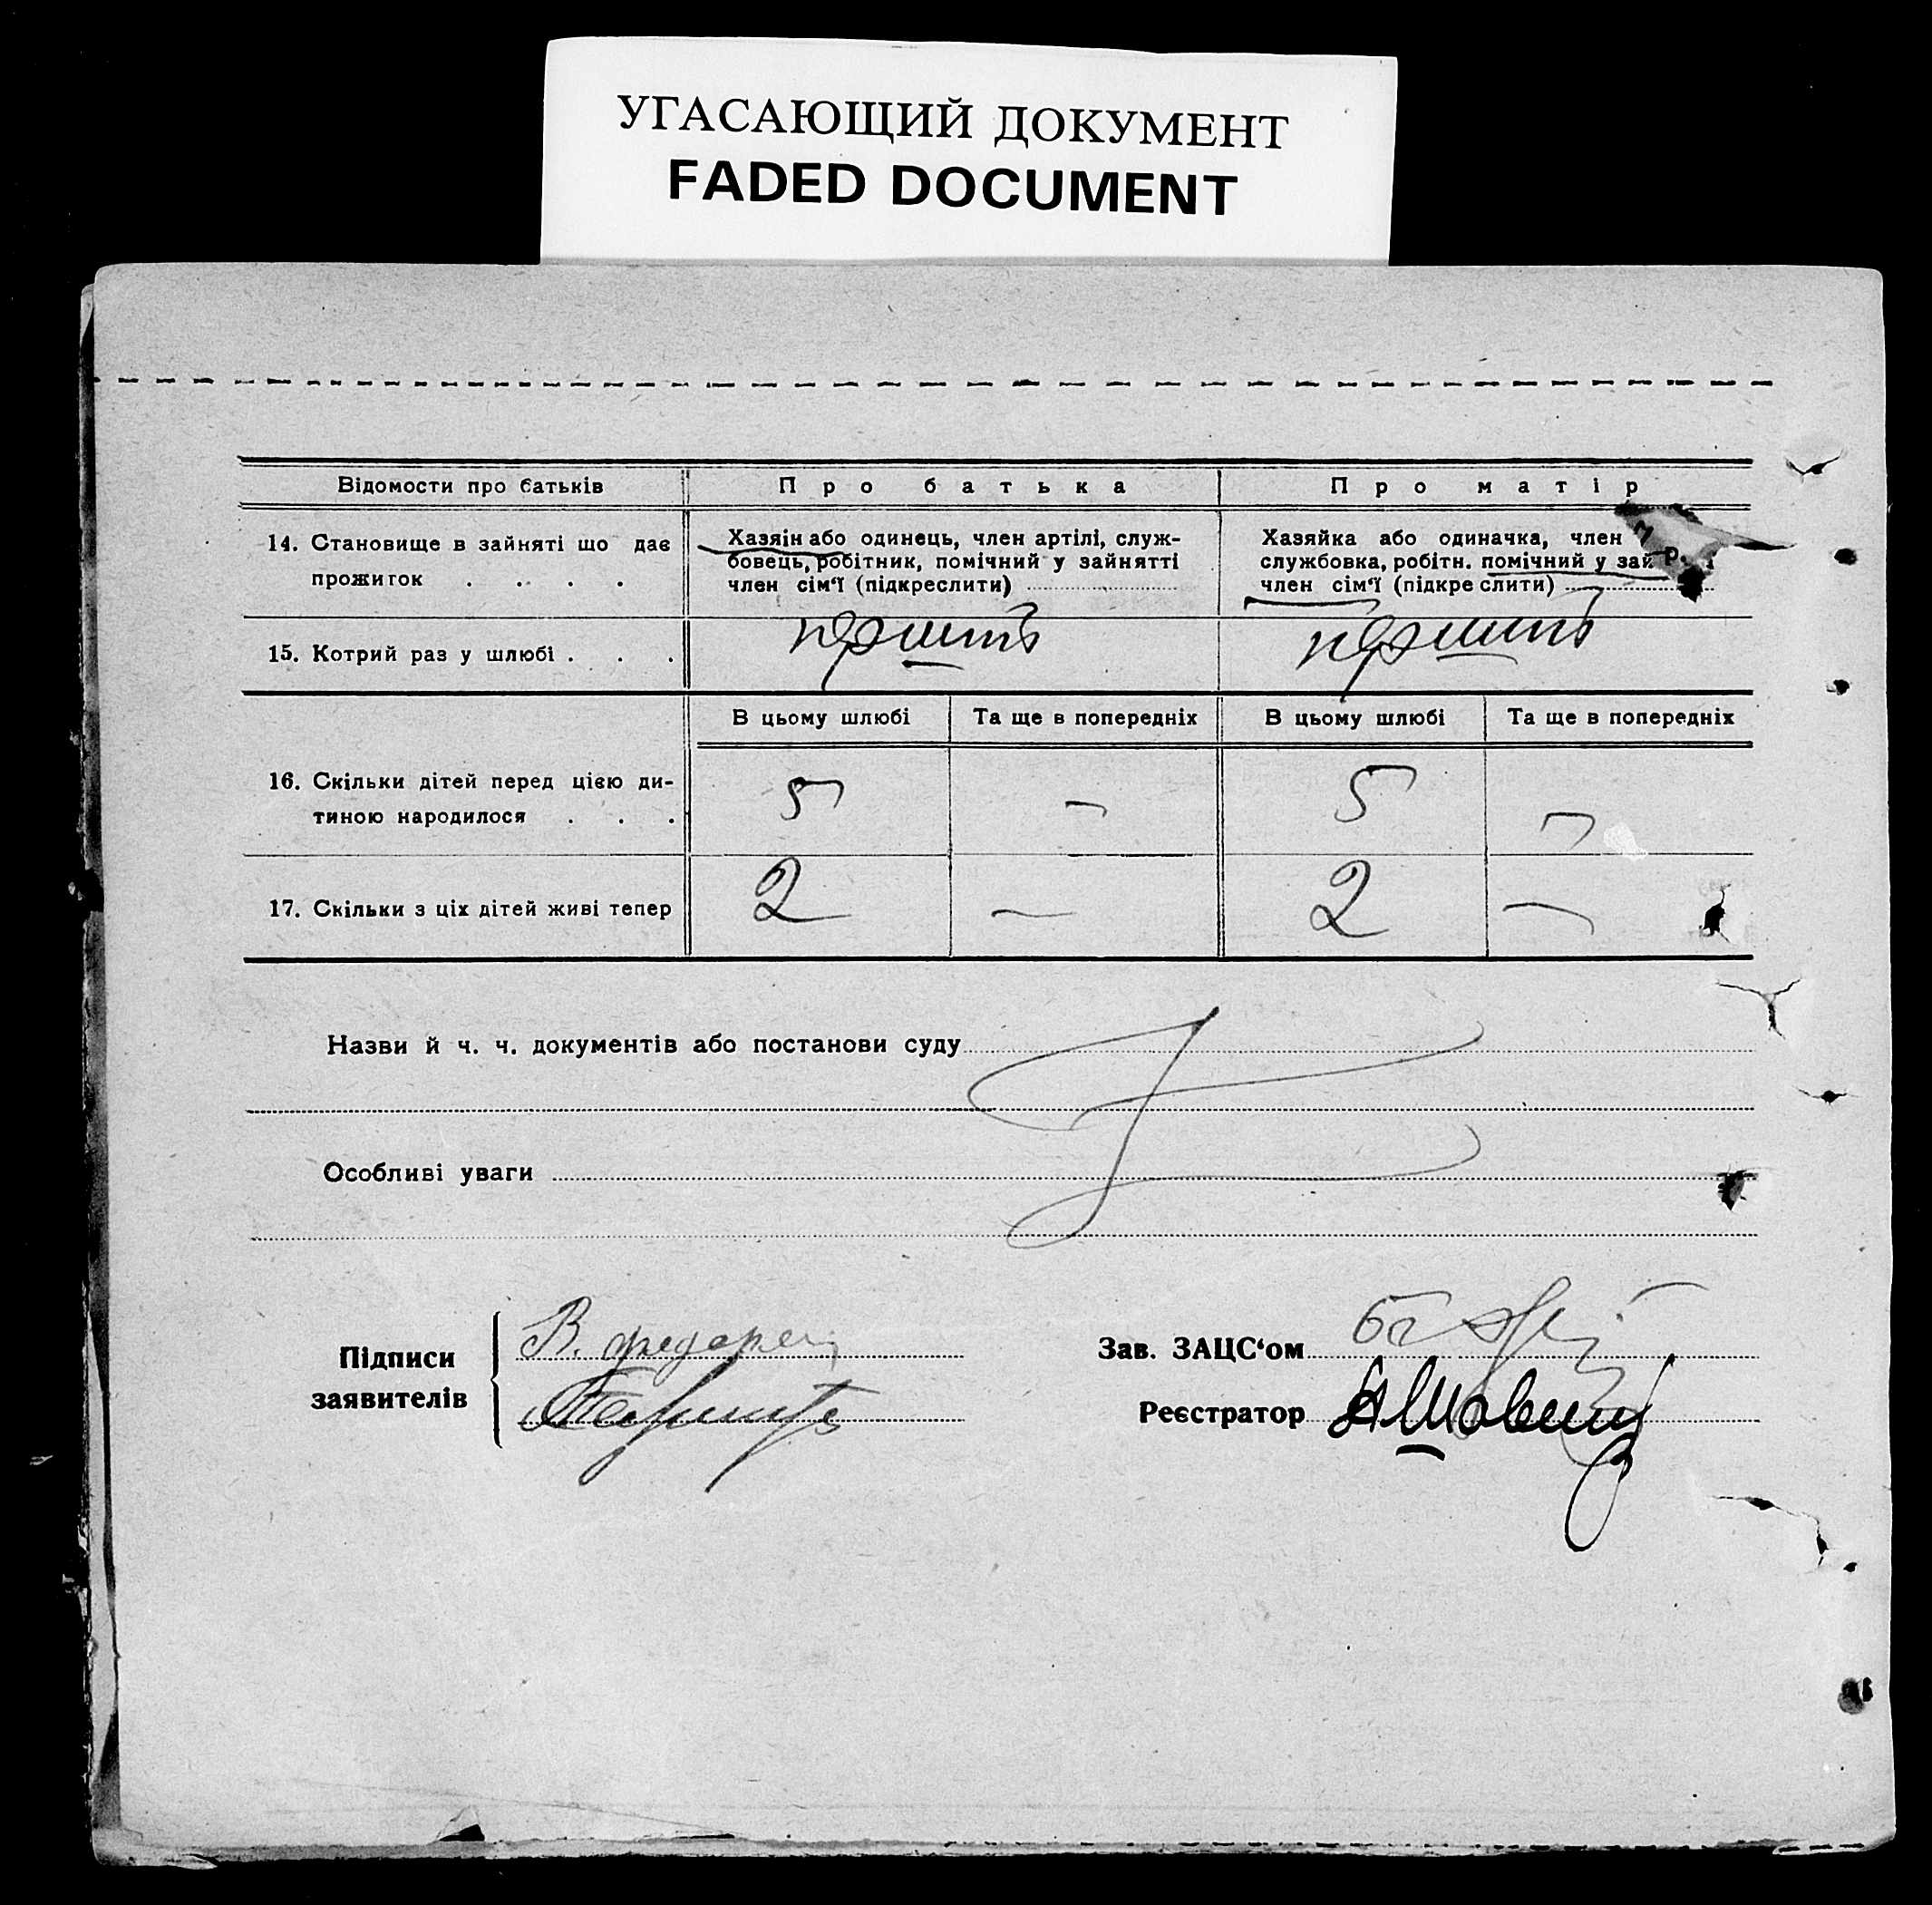 УГАСАЮЩИЙ ДОКУМЕНТ
FADED DOCUMENT
Відомости про батьків
Про батька
Про матір
14. Становище в зайняті що дає
прожиток . . . .
Хазяїн або одинець, член артілі, служ-
бовець, робітник, помічний у зайнятті
член сім'ї (підкреслити)
Хазяйка або одиначка, член
службовка, робітн. помічний у зай
член сім'ї (підкреслити)
15. Котрий раз у шлюбі . . .
перший
перший
В цьому шлюбі
Та ще в попередніх
В цьому шлюбі
Та ще в попередніх
16. Скільки дітей перед цією ди-
тиною народилося . . .
5
—
5
—
17. Скільки з ціх дітей живі тепер
2
—
2
—
Назви й ч. ч. документів або постанови суду
Особливі уваги
Підписи
заявителів
В.
Зав. ЗАЦС'ом
Реєстратор